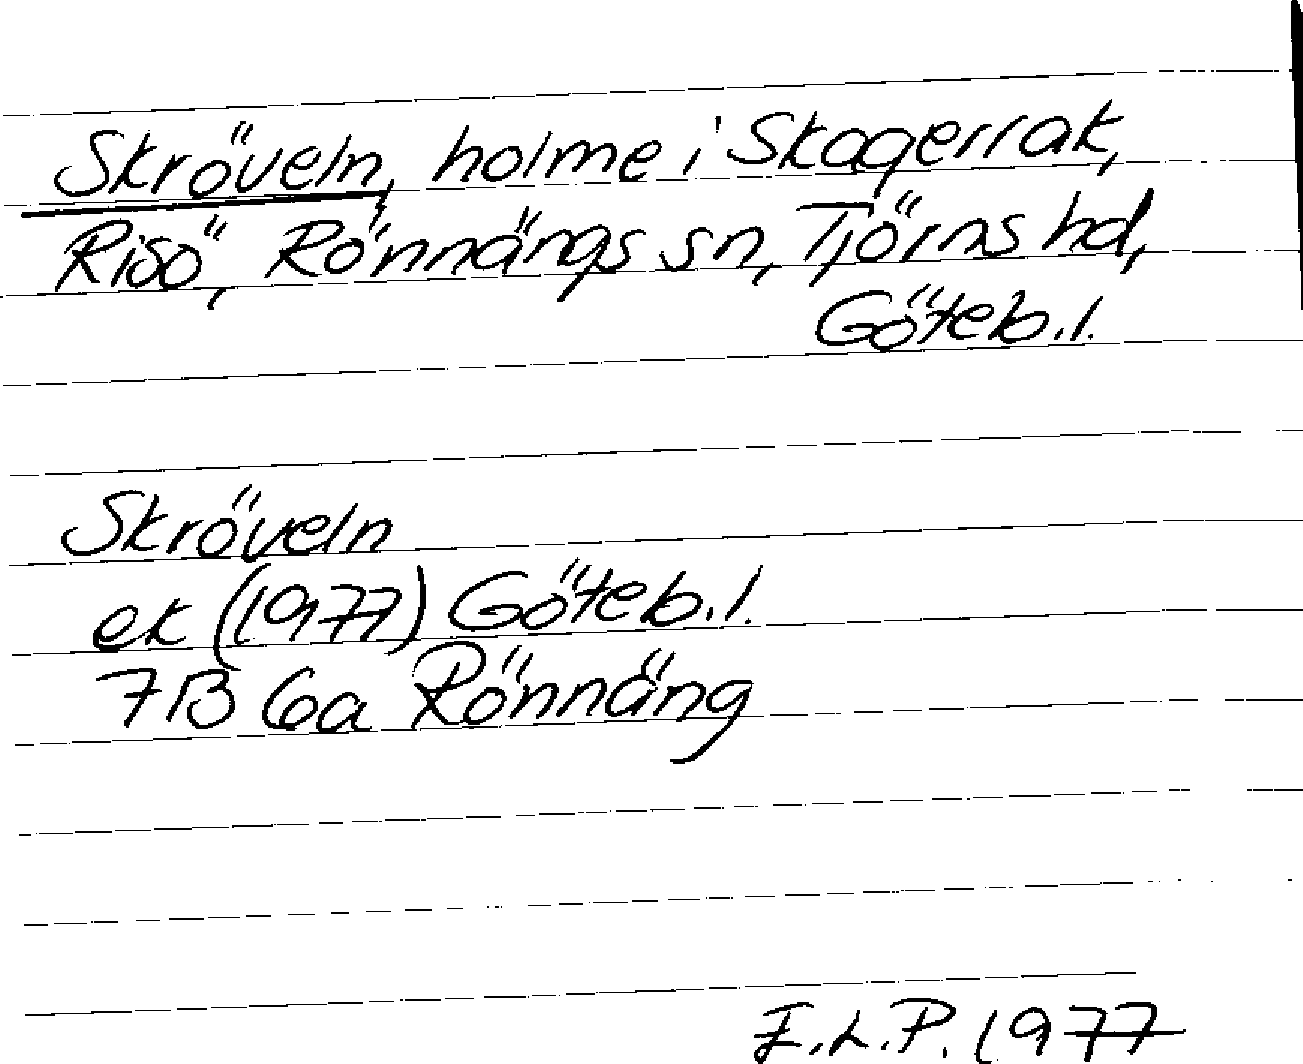 Skröveln, holme i Skagerrak,
Risö, Rönnängs sn, Tjörns hd,
Göteb. l.
Skröveln
ek (1977) Göteb. l.
7B 6a Rönnäng
E.L.P. 1977